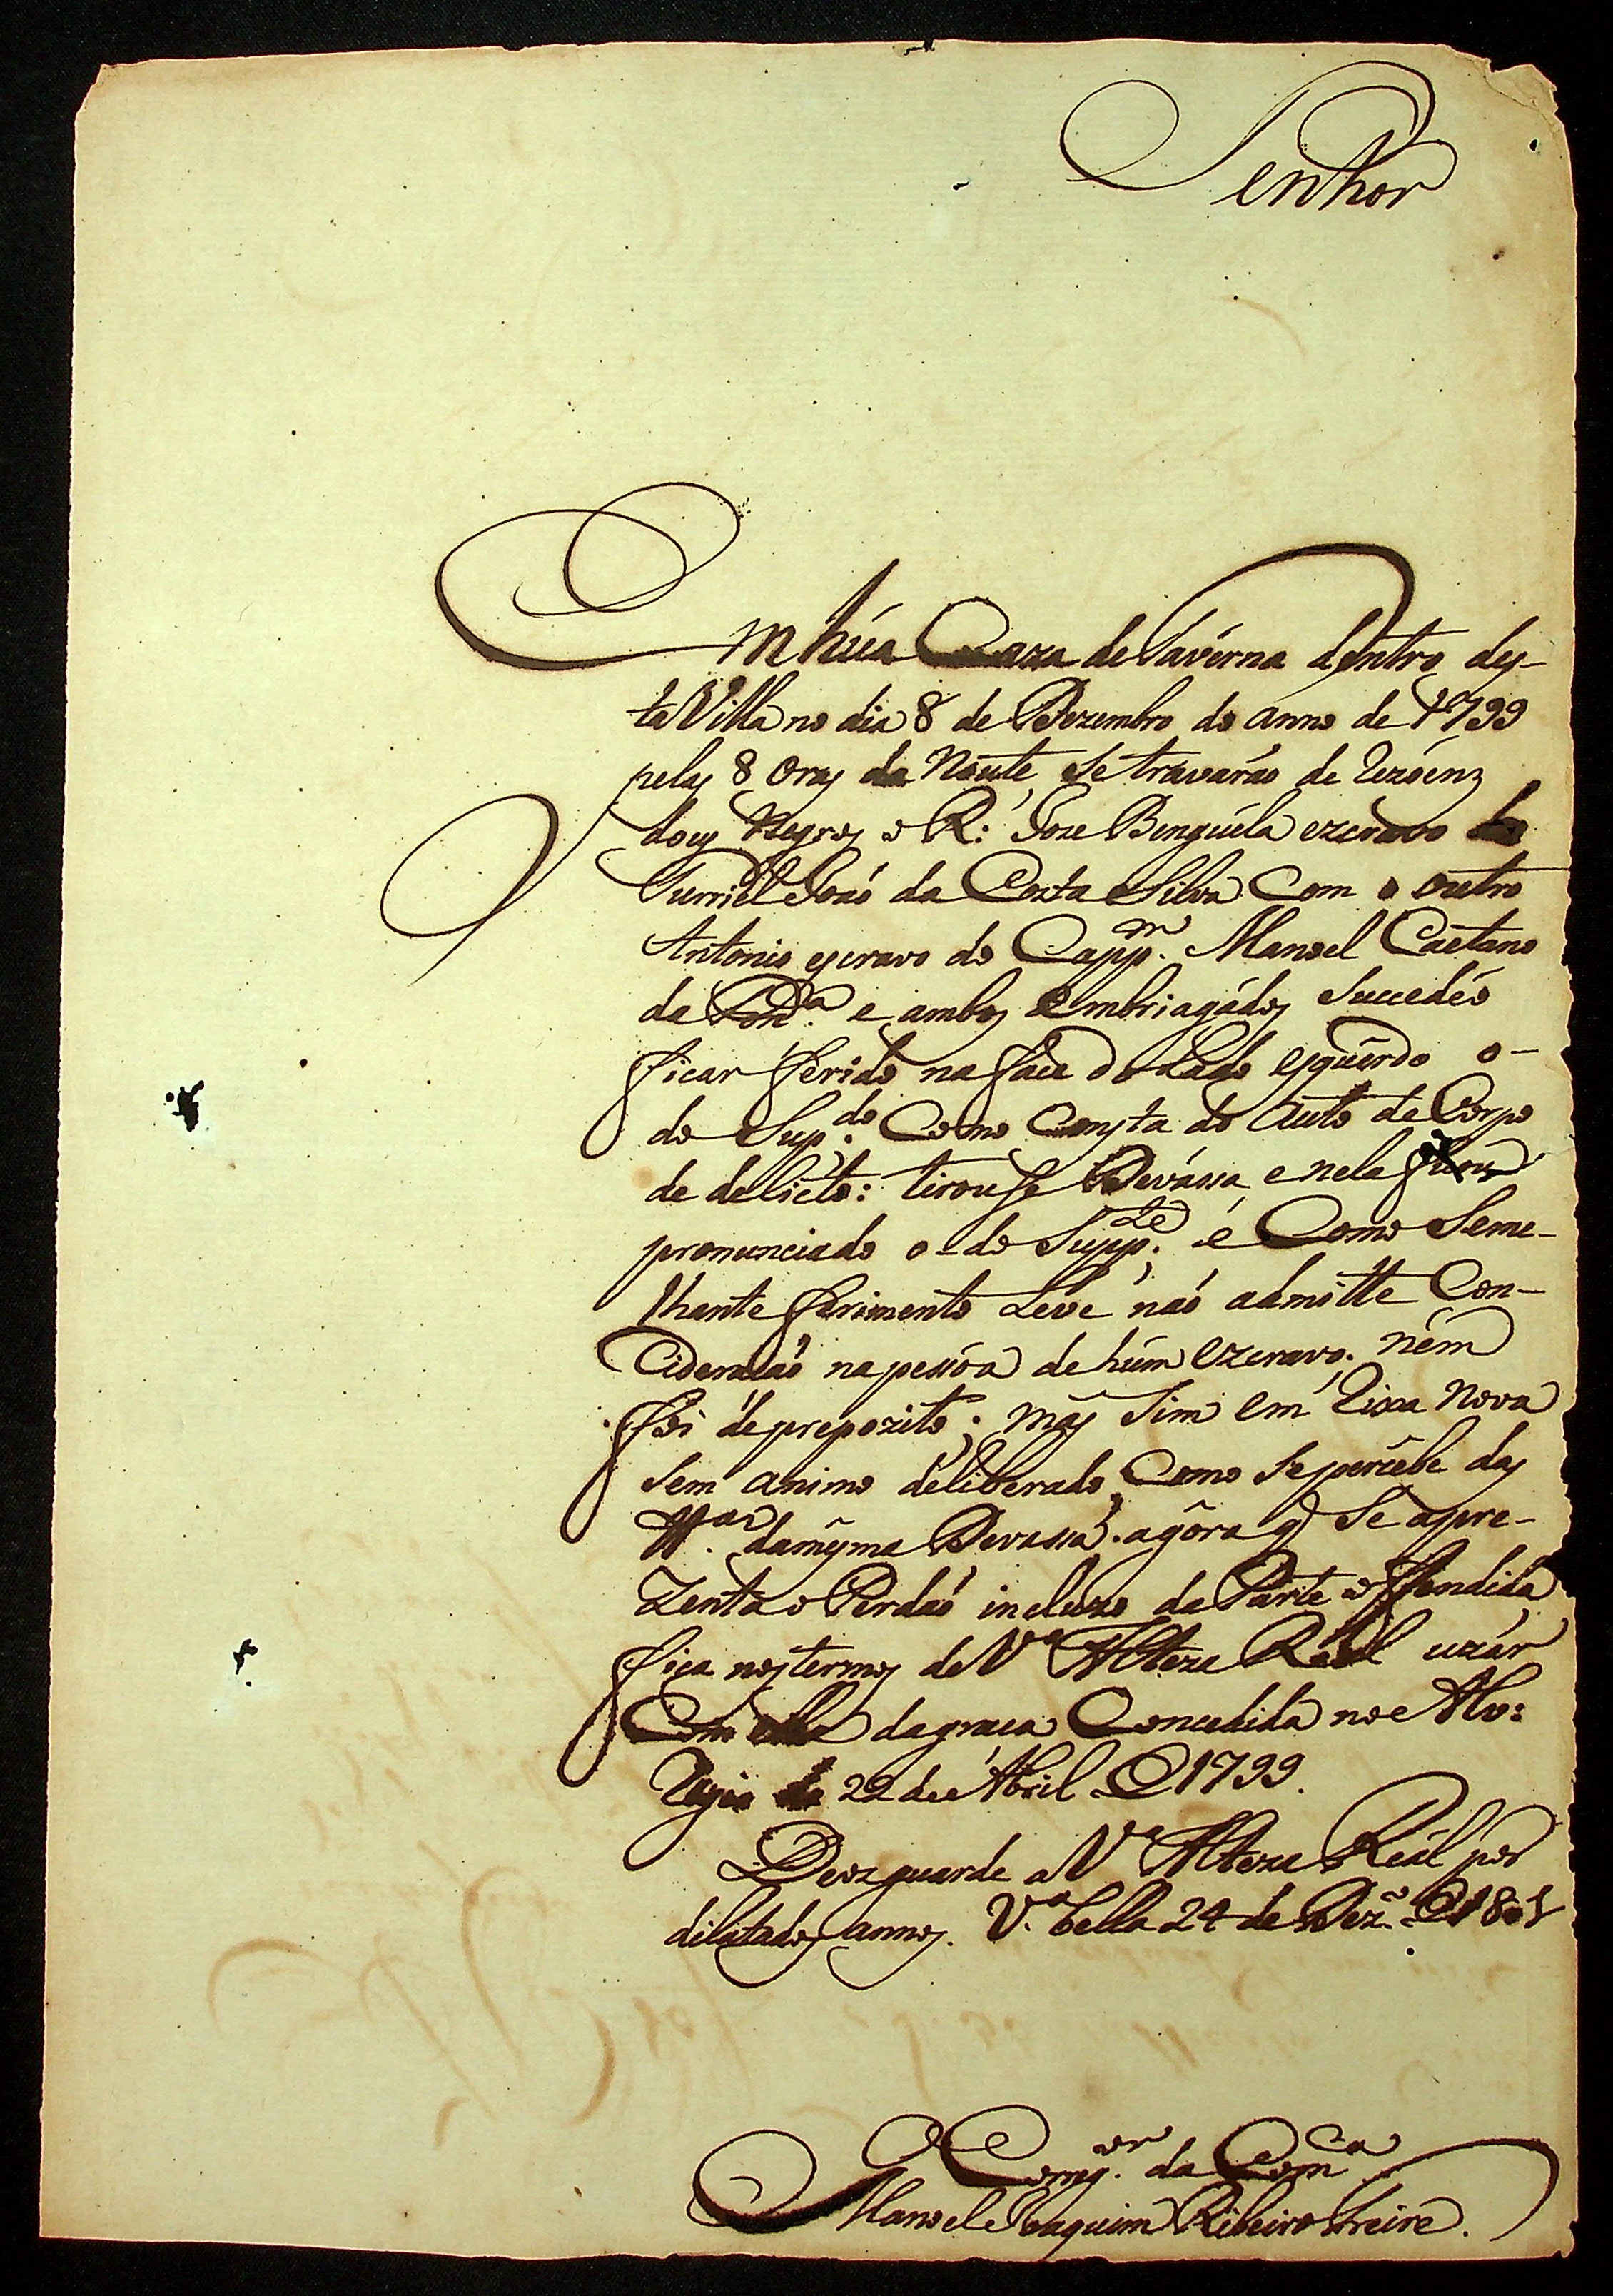 Senhor
Em húa Caza de Taverna dentro des-
ta Villa no dia 8 de Dezembro do anno de 1799
pelas 8 oras da Noute, Se travaráo de Rezóenz
dous Negros o R: Joze Benguela ezcravo do
Furriel Joaó da Costa e Silva Com o outro
Antonio escravo do Capp.m Manoel Caetano
da e ambos Embriagádos Succedéo
ficar ferido na face do Lado esquerdo o-
do Sup.do Como Consta do Auto de Corpo
de delicto: tirouse Devássa, e nela ficou
pronunciado o do Supp.te é Como Seme-
lhante ferimento Leve naó admitte Con-
Cideraçaó na pessóa de húm Ezcravo. ném
foi de prepozito; mas Sim em Rixa Nova
Sem animo deliberado, Como se percebe das
tt.as da mesma Devassa. agora q Se apre-
zenta o Perdaó incluzo da Parte offendida
fica nos termos de V.a Alteza Reál uzár
Com ella da graça Concedida no Alv:
Regio de 22 de Abril D 1799.
Deoz guarde a V.a Alteza Reál por
dilatados annos. V.a bella 24 de Dez.o D 1801
O Corrg.or da Com.ca
Manoel Joaquim Ribeiro Freire.